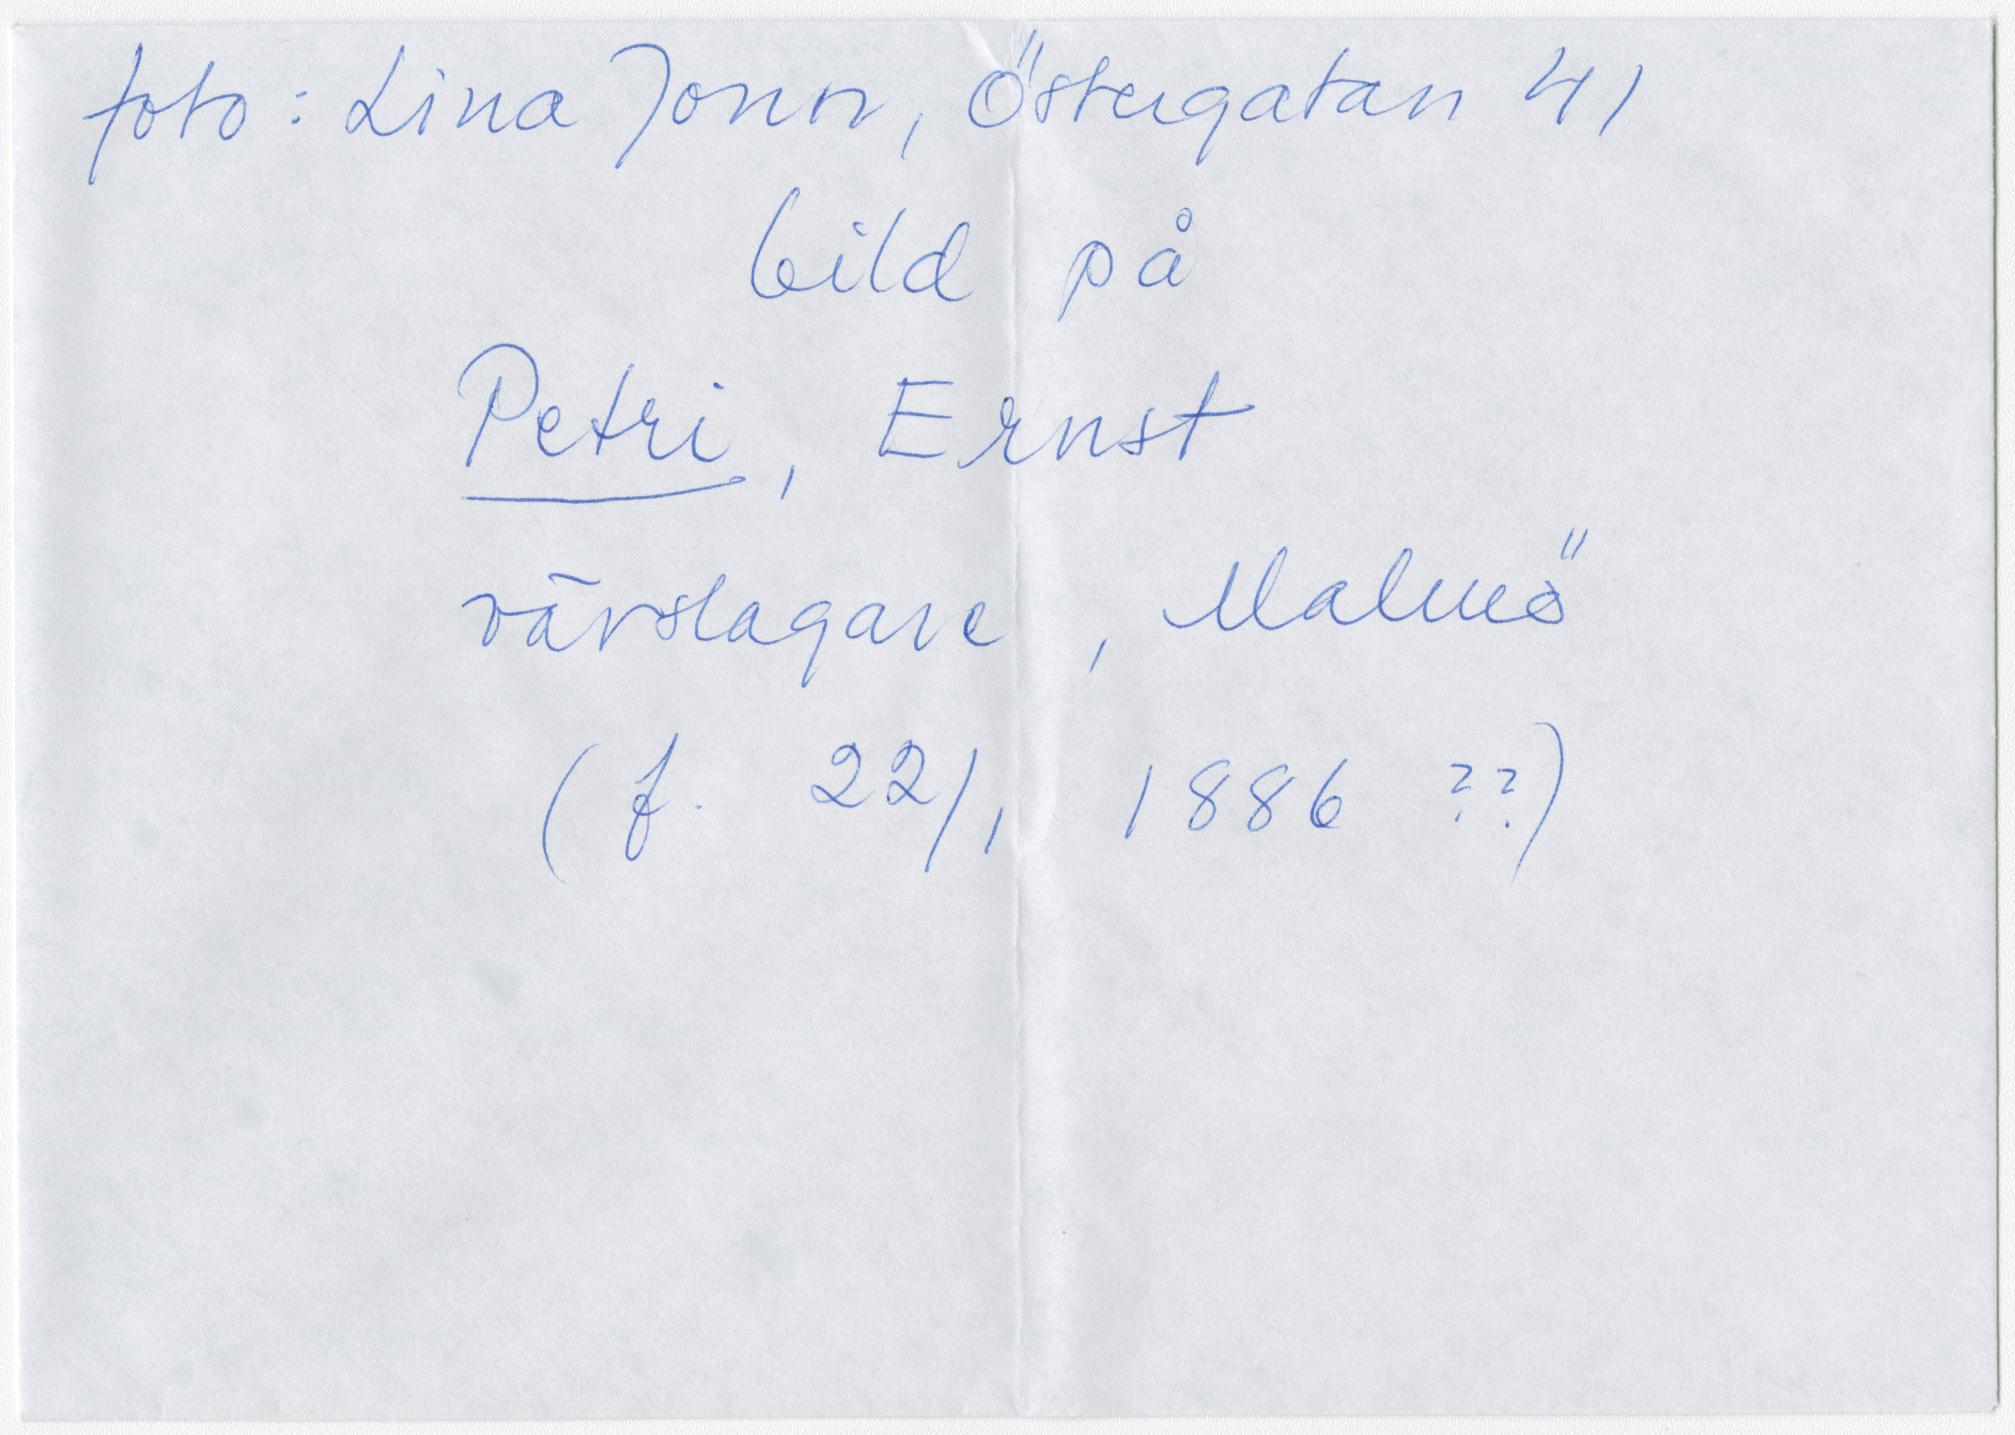 foto: Lina Jonn, Östergatan 41
bild på
Petri, Ernst
värslagare, Malmö
(f. 22/1 1886 ??)